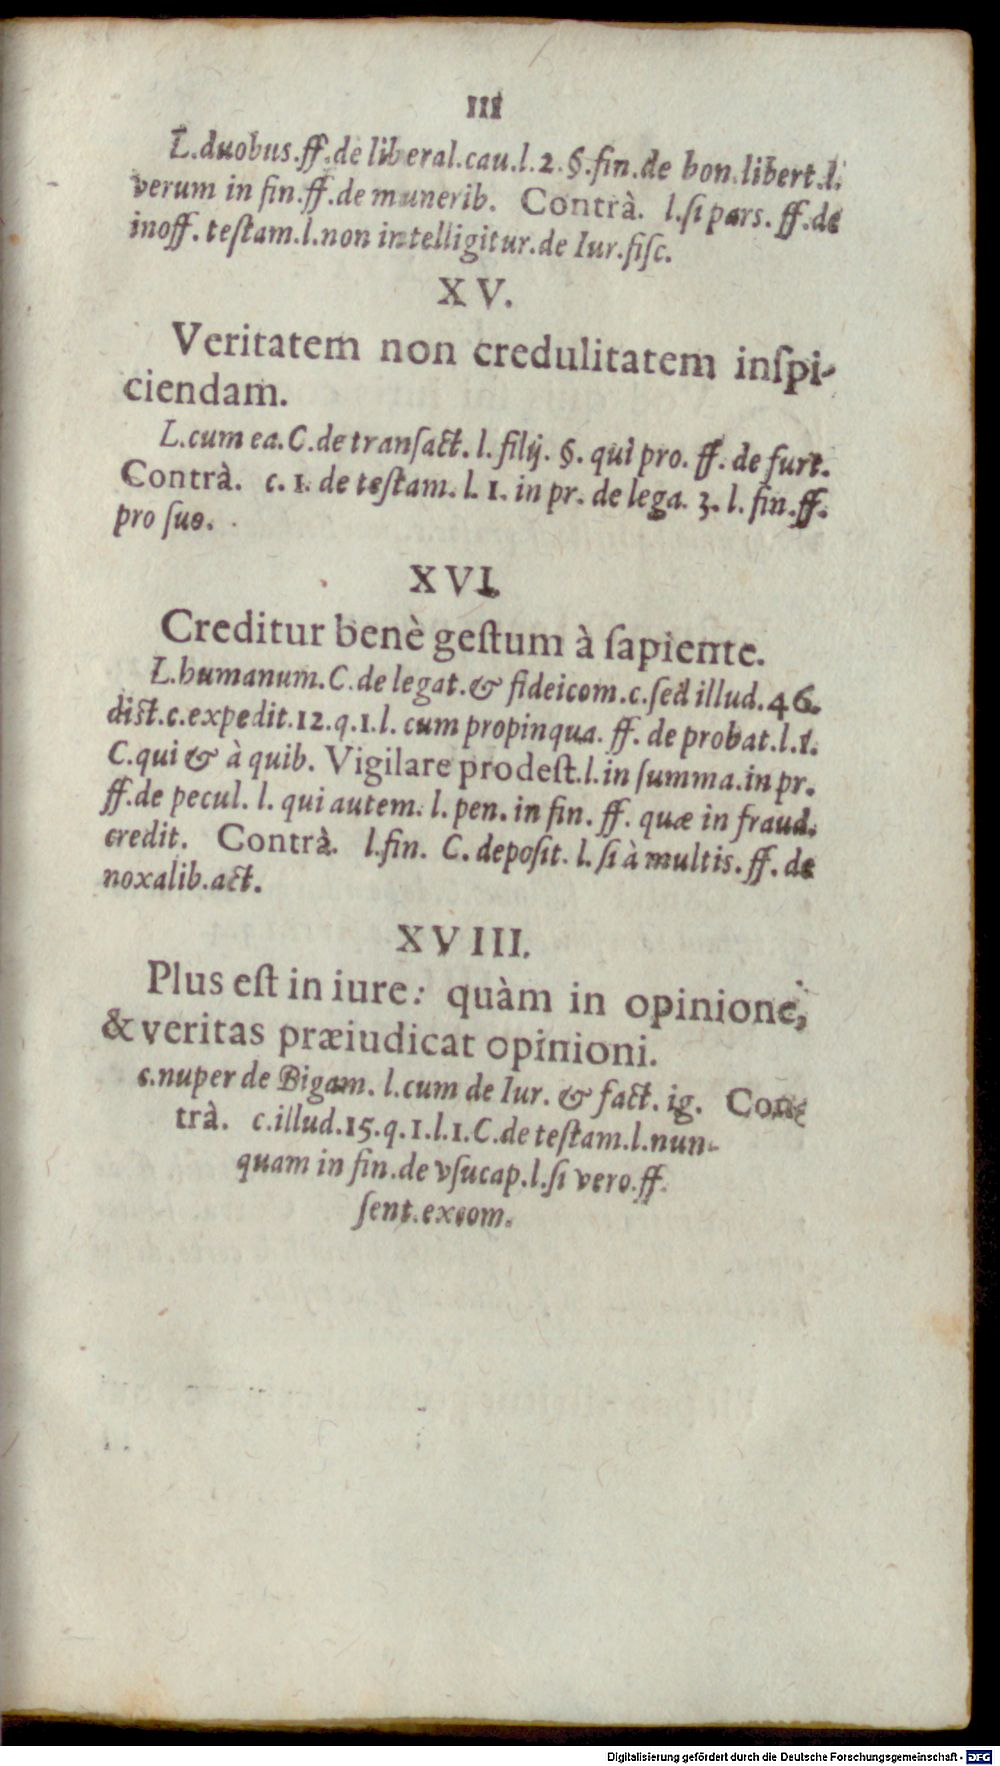 111
L.duobus.ff.de liberal.cau.l.2.§.fin.de bon.libert.l.
verum in fin.ff.de munerib. Contrà. l.ſi pars. ff.de
inoff. teſtam.l.non intelligitur.de Iur.fiſc.
XV.
Veritatem non credulitatem inſpi-
ciendam.
L.cum ea.C.de tranſact. l. filij. §. qui pro. ff. de furt.
Contrà. c. 1. de teſtam. l. 1. in pr. de lega. 3. l. fin.ff.
pro ſuo.
XVI.
Creditur benè geſtum à ſapiente.
L.humanum.C.de legat.& fideicom.c.ſed illud.46.
diſt.c.expedit.12.q.1.l. cum propinqua. ff. de probat.l.1.
C.qui & à quib. Vigilare prodeſt.l.in ſumma.in pr.
ff.de pecul. l. qui autem. l. pen. in fin. ff. quæ in fraud.
credit. Contrà. l.fin. C. depoſit. l. ſi à multis. ff. de
noxalib.act.
XVIII.
Plus eſt in iure: quàm in opinione,
& veritas præiudicat opinioni.
c.nuper de Bigam. l.cum de Iur. & fact. ig. Con-
trà. c.illud.15.q.1.l.1.C.de teſtam.l.nun-
quam in fin.de vſucap.l.ſi vero.ff.
ſent.excom.
Digitalisierung gefördert durch die Deutsche Forschungsgemeinschaft - DFG